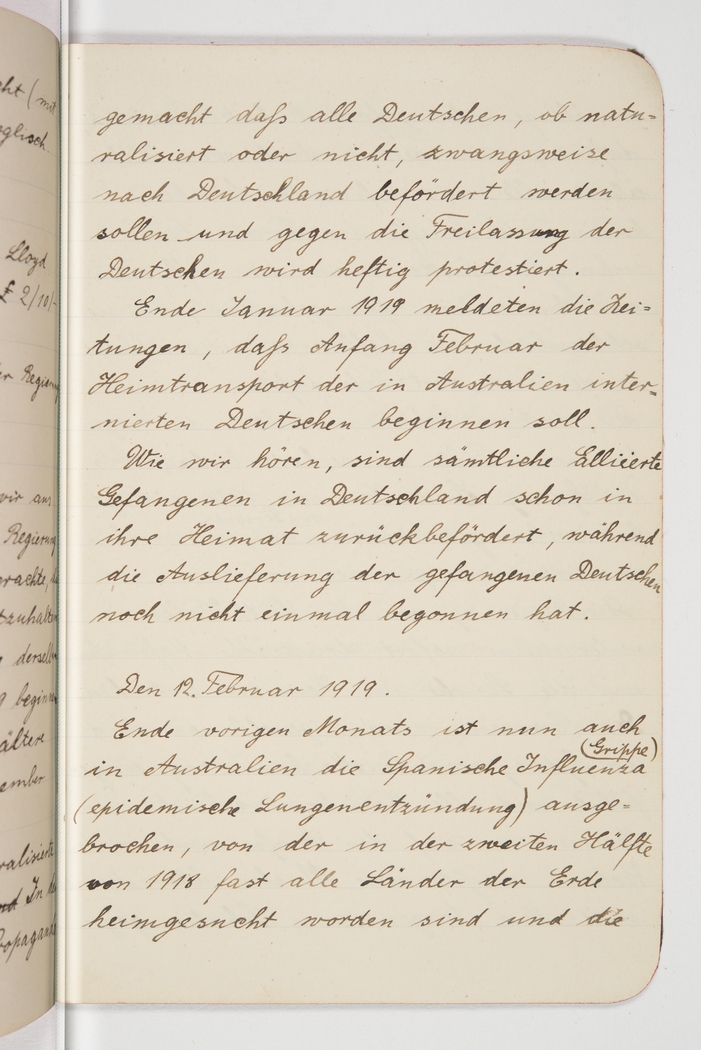 gemacht daß alle Deutschen, ob natu=
ralisiert oder nicht, zwangsweise
nach Deutschland befördert werden
sollen und gegen die Freilassung der
Deutschen wird heftig protestiert.
Ende Januar 1919 meldeten die Zei=
tungen, daß Anfang Februar der
Heimtransport der in Australien inter=
nierten Deutschen beginnen soll.
Wie wir hören, sind sämtliche Elliierte
Gefangenen in Deutschland schon in
ihre Heimat zurückbefördert, während
die Auslieferung der gefangenen Deutschen
noch nicht einmal begonnen hat.
Den 12. Februar 1919.
Ende vorigen Monats ist nun auch
(Grippe)
in Australien die Spanische Influenza
(epidemische Lungenentzündung) ausge=
brochen, von der in der zweiten Hälfte
von 1918 fast alle Länder der Erde
heimgesucht worden sind und die
Lloyd
£ 2/10/-
wir aus
Regierung
derselben
ältere